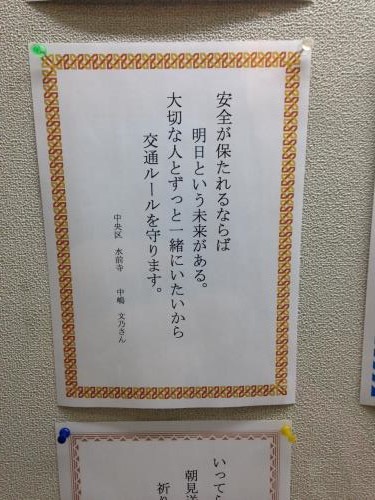 安全が保たれるならば
明日という未来がある。
大切な人とずっと一緒にいたいから
交通ルールを守ります。
中央区 水前寺 中嶋 文乃さん
いってら
朝見送
祈り